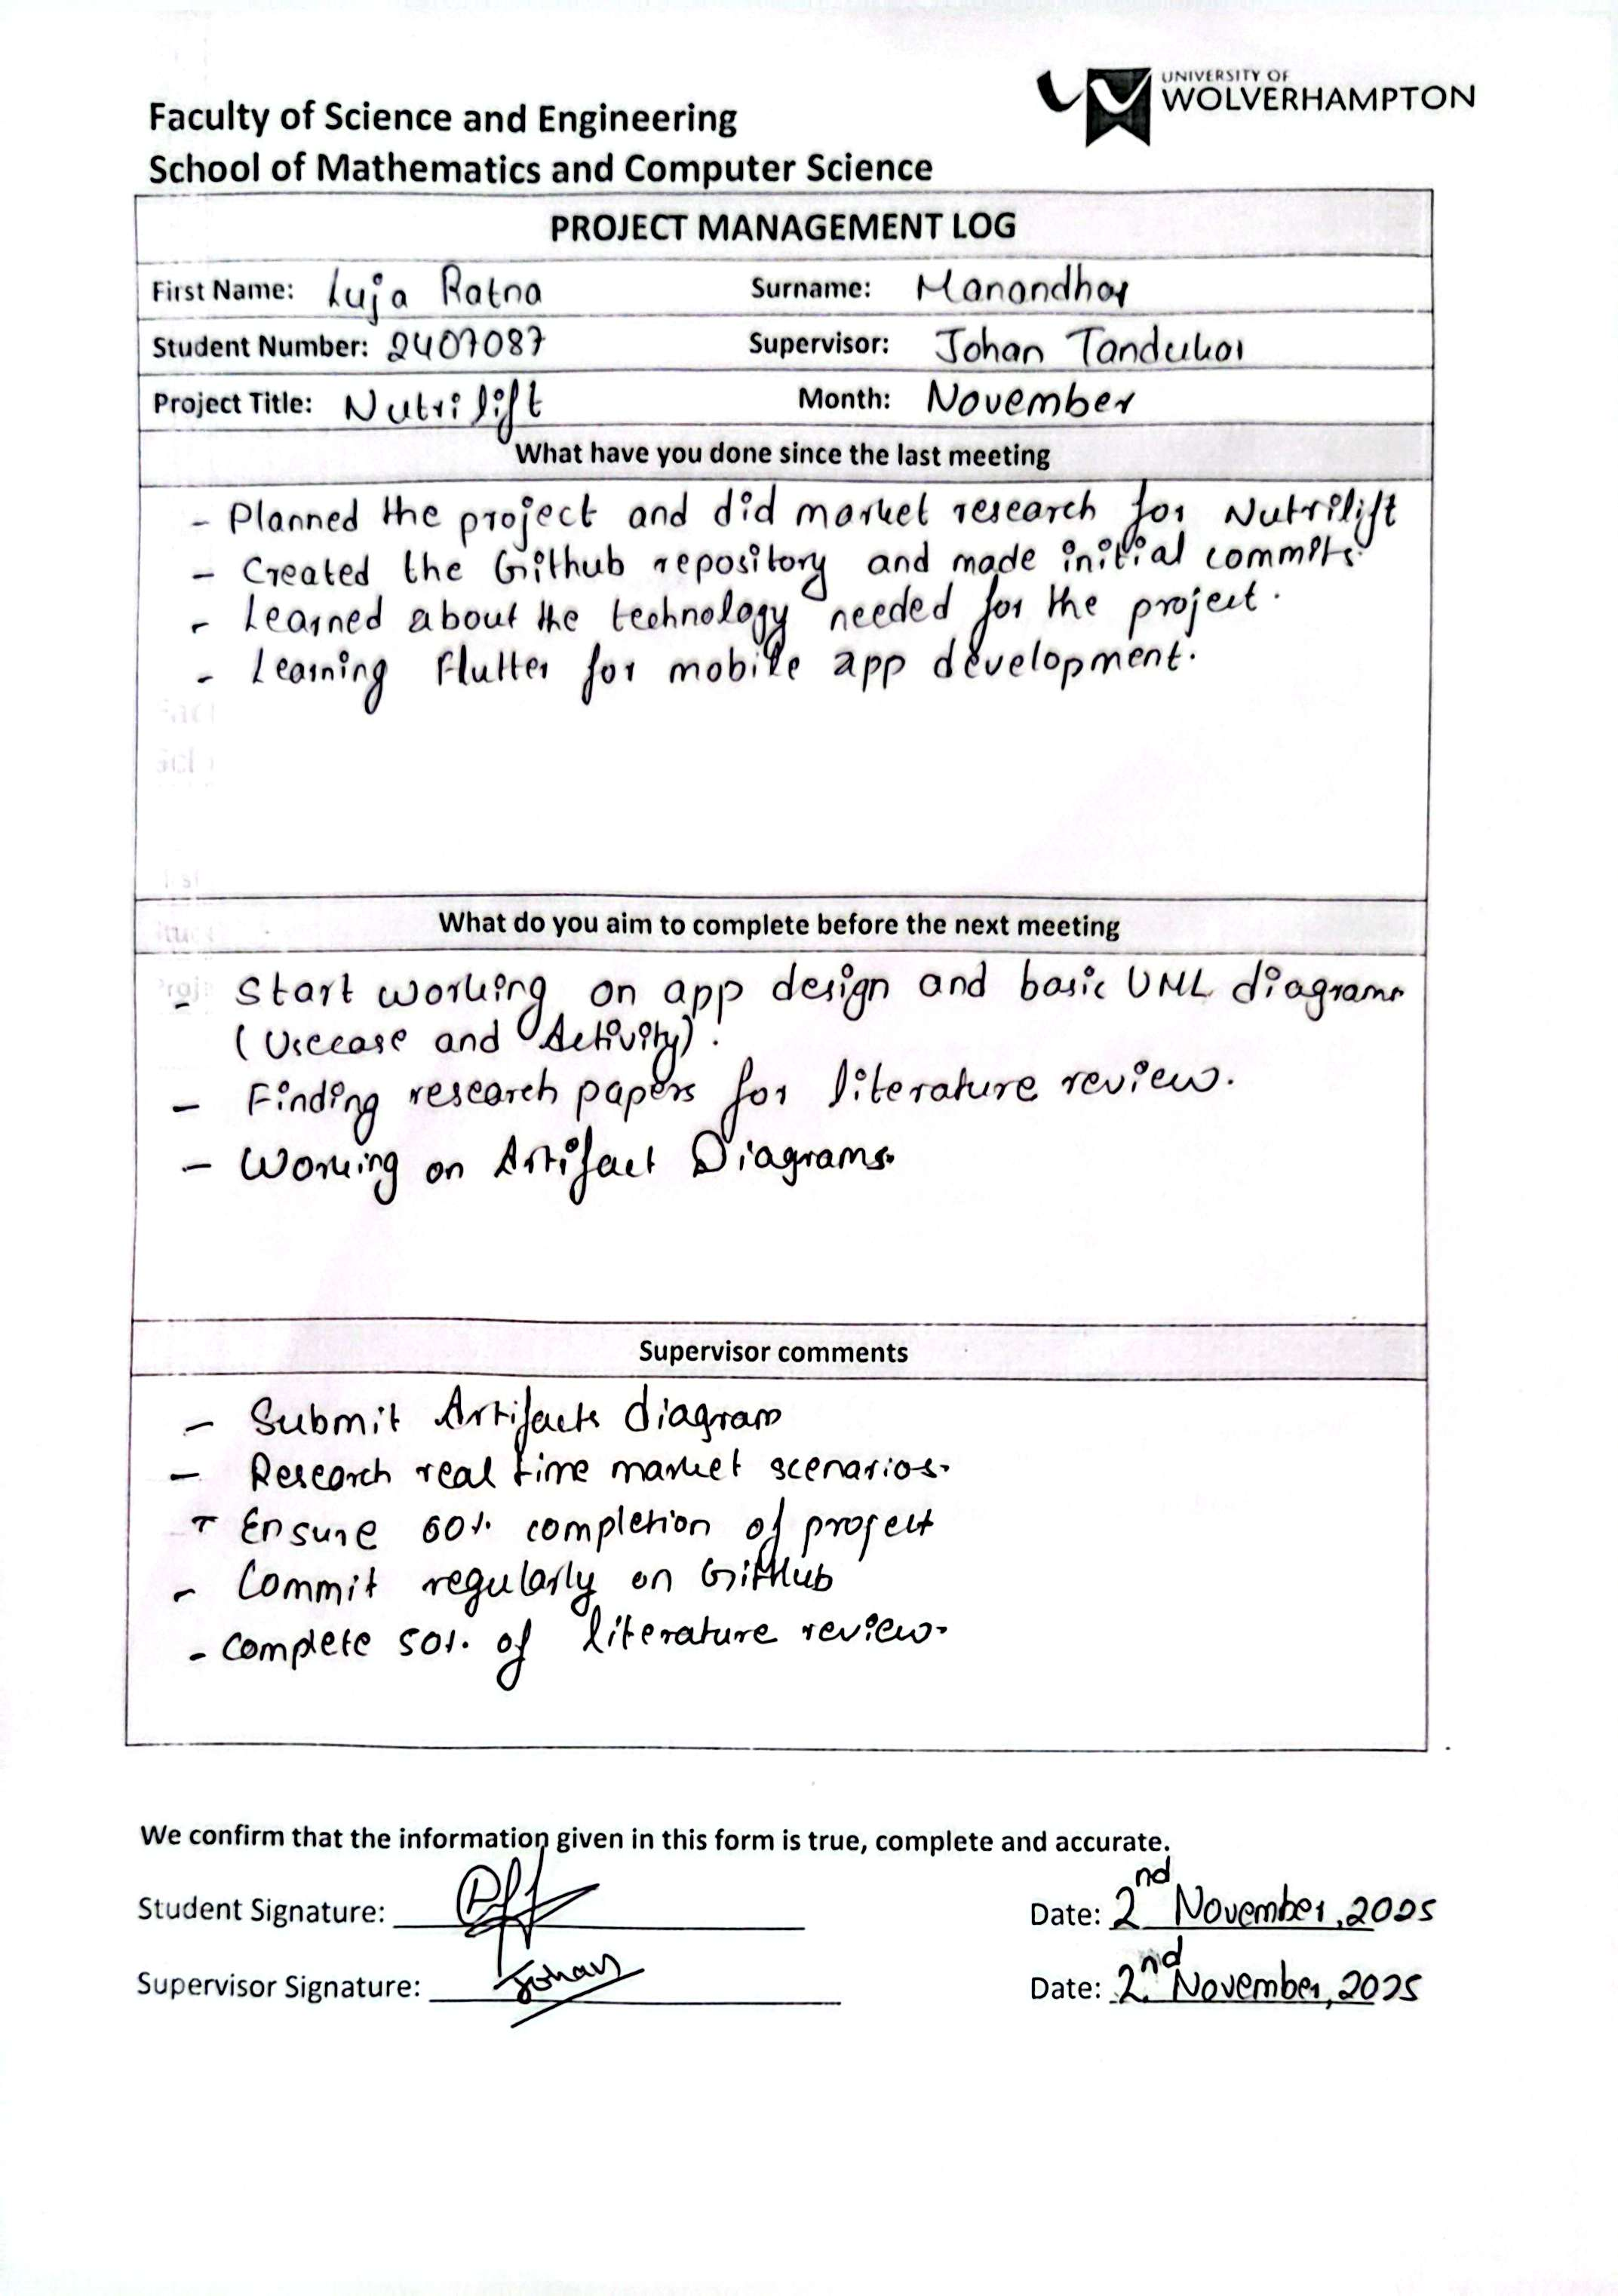 UNIVERSITY OF
WOLVERHAMPTON
Faculty of Science and Engineering
School of Mathematics and Computer Science
PROJECT MANAGEMENT LOG
First Name: Luja Ratna Surname: Manandhar
Student Number: 2407087 Supervisor: Johan Tandukar
Project Title: Nutrilift Month: November
What have you done since the last meeting
- Planned the project and did market research for Nutrilift
- Created the Github repository and made initial commits.
- Learned about the technology needed for the project.
- Learning Flutter for mobile app development.
What do you aim to complete before the next meeting
- Start working on app design and basic UML diagrams
(Usecase and Activity).
- Finding research papers for literature review.
- Working on Artifact Diagrams.
Supervisor comments
- Submit Artifacts diagram
- Research real time market scenarios.
- Ensure 60% completion of project
- Commit regularly on GitHub
- Complete 50% of literature review.
We confirm that the information given in this form is true, complete and accurate.
Student Signature: Date: 2nd November, 2025
Supervisor Signature: Johan Date: 2nd November, 2025